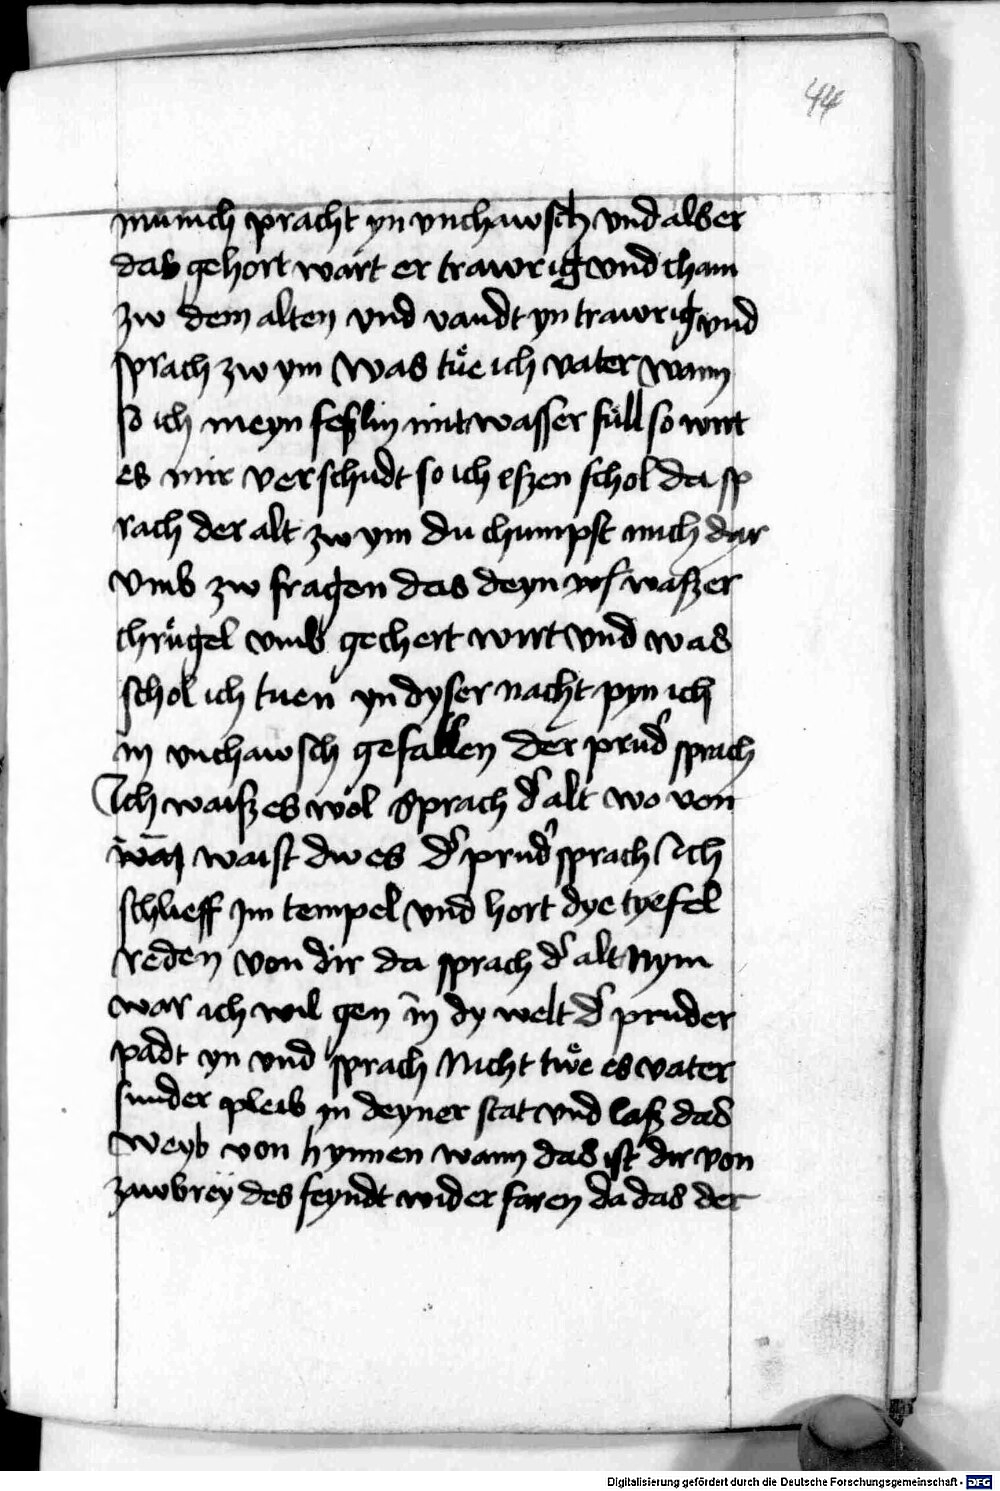 44
munich pracht yn vnchawsch vnd als er
das gehort wart er trawrig vnd cham
zw dem alten vnd vandt yn trawrig vnd
sprach zw ym Was tuͤe ich vater wann
so ich meyn feslin mit wasser full so wirt
es mir verschudt so ich eszen schol da sp
rach der alt zw ym du chumpst mich dar
vmb zw fragen das deyn waszer
chruͤgel vmb gechert wirt vnd was
schol ich tuen yn dyser nacht pyn ich
in vnchawsch gefallen der prud̕ sprach
Ich waisz es wol Sprach d̕ alt wo von
waist dw es d̕ prud̕ sprach Ich
schlieff Im tempel vnd hort dye tyefel
reden von dir da sprach d̕ alt Nym
war ich wil gen in dy welt d̕ pruder
padt yn vnd sprach Nicht tuͤe es vater
sunder pleib yn deyner stat vnd lasz das
weyb von hynnen wann das ist dir von
zawbrey des feyndt wider faren da das der
Digitalisierung gefördert durch die Deutsche Forschungsgemeinschaft - DFG